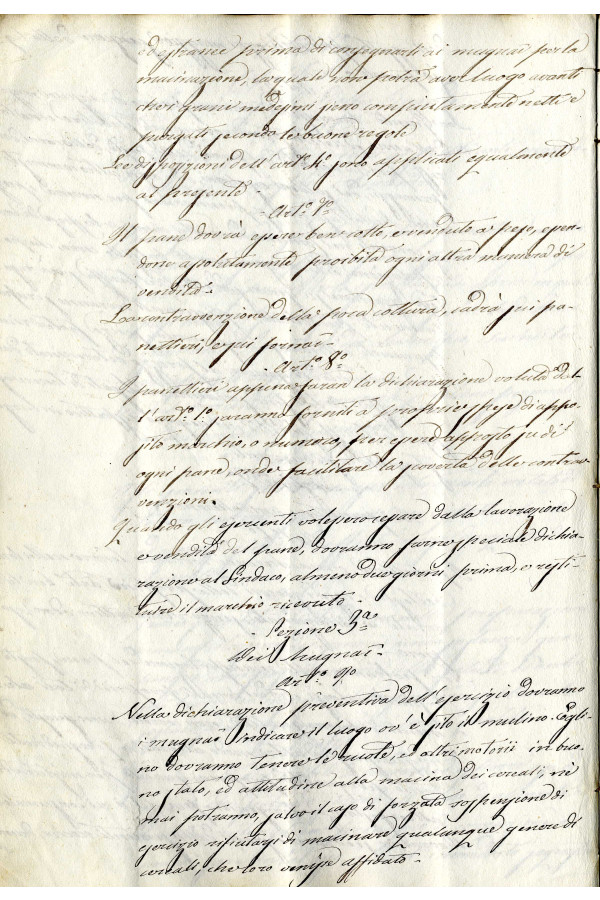 ed estranee prima di consegnarli ai mugnai per la
macinazione, la quale non potrà aver luogo avanti
che i grani medesimi sieno compiutamente netti e
purgati secondo le buone regole
Le disposizioni dell'art.° 4.° sono applicati egualmente
al presente -
- Art.° 7.°
Il pane dovrà essere ben cotto, e venduto a peso, essen-
done assolutamente proibita ogni altra maniera di
vendita -
La contravvenzione della poca cottura, cadrà sui pa-
nettieri, e sui fornai -
- Art.° 8.°
I panettieri appena faran la dichiarazione voluta dal-
l'art.° 1.° saranno forniti a proprie spese di appo-
sito marchio, o numero, per essere apposto su di
ogni pane, onde facilitare la scoverta delle contrav-
venzioni.
Quando gli esercenti volessero cessare dalla lavorazione
e vendita del pane, dovranno farne speciale dichia-
razione al Sindaco, almeno due giorni prima, e resti-
tuire il marchio ricevuto -
- Sezione 3.a
Dei Mugnai -
Art.° 9.°
Nella dichiarazione preventiva dell'esercizio dovranno
i mugnai indicare il luogo ov'è sito il mulino. Egli-
no dovranno tenere le ruote, ed altri motorii in buo-
no stato, ed attitudine alla macina dei cereali, nè
mai potranno, salvo il caso di forzata sospensione di
esercizio rifiutarsi di macinare qualunque genere di
cereali, che loro venisse affidato -